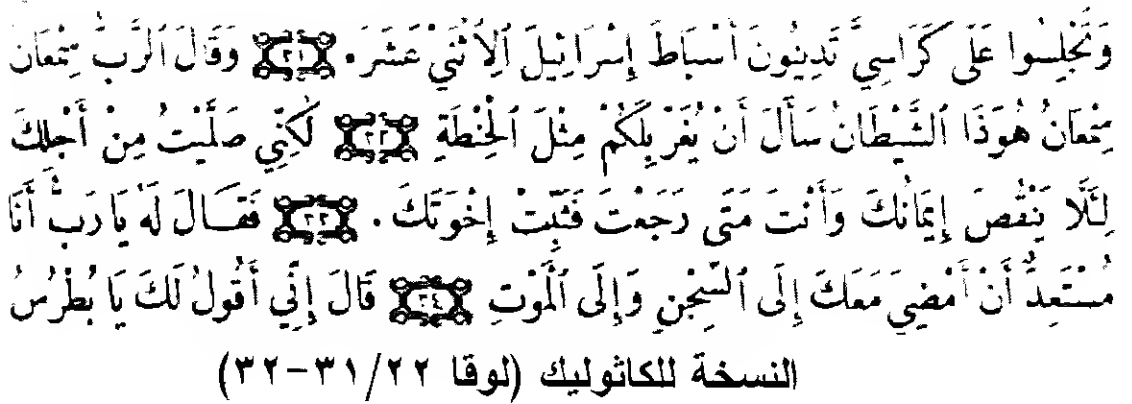 وَتَجْلِسُوا عَلَى كَرَاسِيَّ تَدِينُونَ أَسْبَاطَ إِسْرَائِيلَ ٱلِٱثْنَيْ عَشَرَ. ٣١ وَقَالَ ٱلرَّبُّ سِمْعَانُ
سِمْعَانُ هُوَذَا ٱلشَّيْطَانُ سَأَلَ أَنْ يُغَرْبِلَكُمْ مِثْلَ ٱلْحِنْطَةِ ٣٢ لَكِنِّي صَلَّيْتُ مِنْ أَجْلِكَ
لِئَلَّا يَنْقُصَ إِيمَانُكَ وَأَنْتَ مَتَى رَجَعْتَ فَثَبِّتْ إِخْوَتَكَ. ٣٣ فَقَالَ لَهُ يَا رَبُّ أَنَا
مُسْتَعِدٌّ أَنْ أَمْضِيَ مَعَكَ إِلَى ٱلسِّجْنِ وَإِلَى ٱلْمَوْتِ ٣٤ قَالَ إِنِّي أَقُولُ لَكَ يَا بُطْرُسُ
النسخة للكاثوليك (لوقا ٢٢/٣١-٣٢)